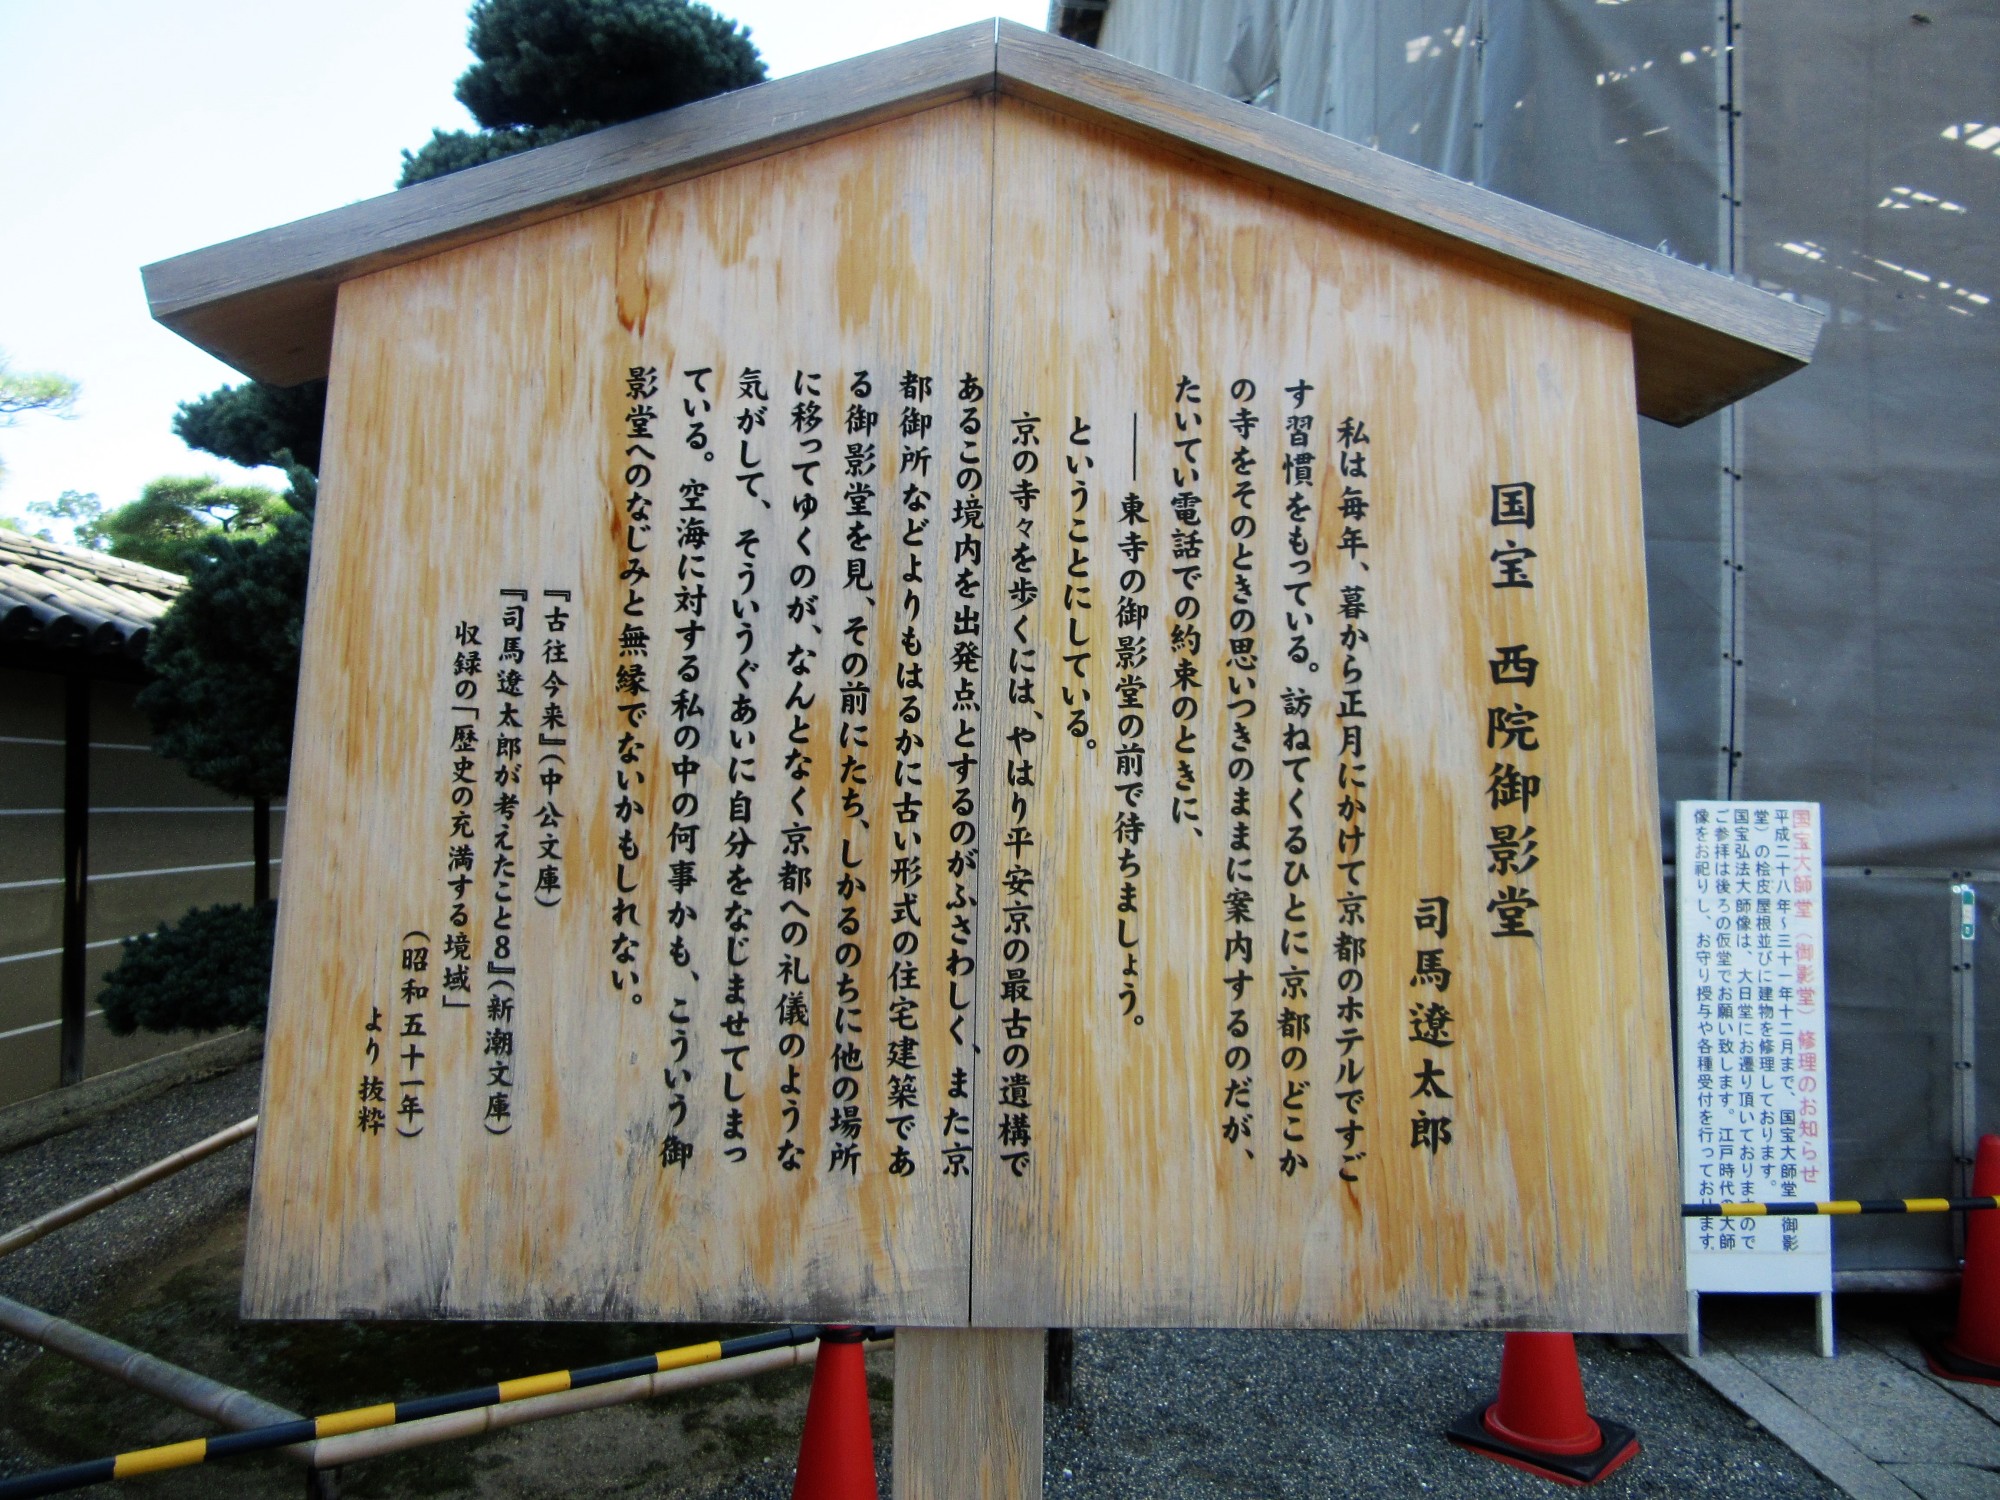 国宝 西院御影堂
司馬遼太郎
私は毎年、暮から正月にかけて京都のホテルですご
す習慣をもっている。訪ねてくるひとに京都のどこか
の寺をそのときの思いつきのままに案内するのだが、
たいてい電話での約束のときに、
――東寺の御影堂の前で待ちましょう。
ということにしている。
京の寺々を歩くには、やはり平安京の最古の遺構で
あるこの境内を出発点とするのがふさわしく、また京
都御所などよりもはるかに古い形式の住宅建築であ
る御影堂を見、その前にたち、しかるのちに他の場所
に移ってゆくのが、なんとなく京都への礼儀のような
気がして、そういうぐあいに自分をなじませてしまっ
ている。空海に対する私の中の何事かも、こういう御
影堂へのなじみと無縁でないかもしれない。
『古往今来』(中公文庫)
『司馬遼太郎が考えたこと8』(新潮文庫)
収録の「歴史の充満する境域」
(昭和五十一年)
より抜粋
国宝大師堂(御影堂)修理のお知らせ
平成二十八年~三十一年十二月まで、国宝大師堂 御影
堂)の桧皮屋根並びに建物を修理しております。
国宝弘法大師像は、大日堂にお遷り頂いておりますので
ご参拝は後ろの仮堂でお願い致します。江戸時代の大師
像をお祀りし、お守り授与や各種受付を行っております。